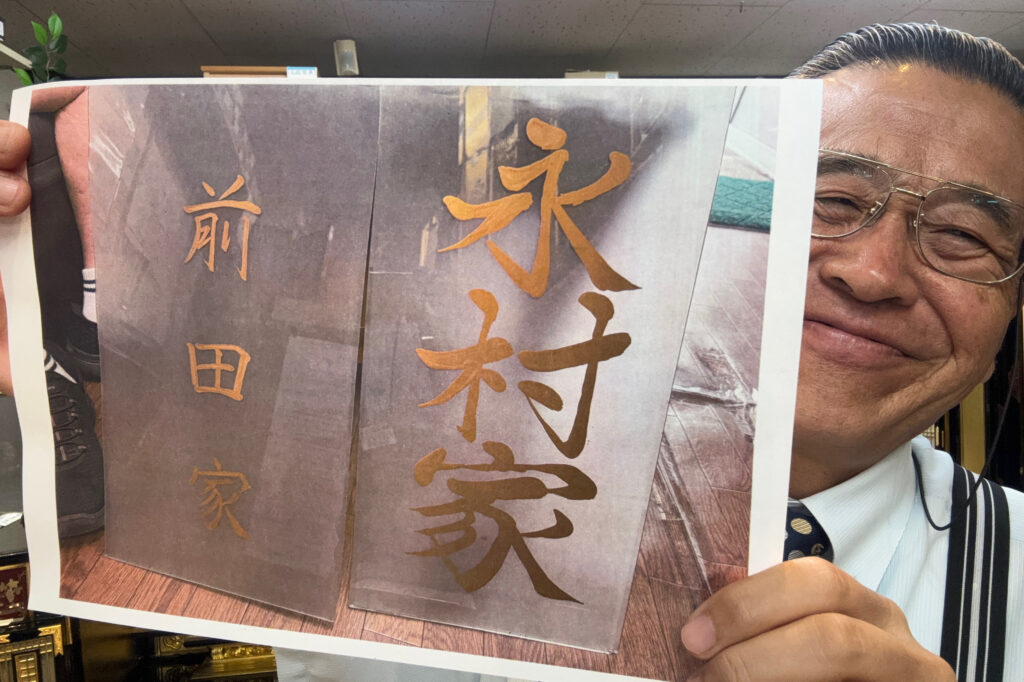 永村家
前田家